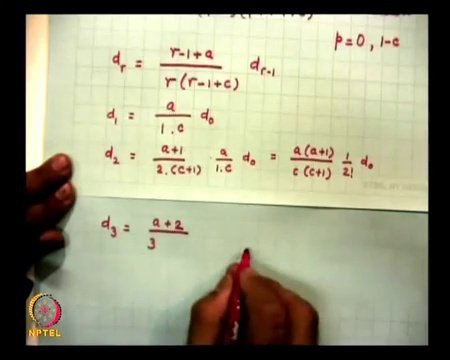 p=0, 1-c
d_r = \frac{r-1+a}{r(r-1+c)} d_{r-1}
d_1 = \frac{a}{1.c} d_0
d_2 = \frac{a+1}{2.(c+1)} . \frac{a}{1.c} d_0 = \frac{a(a+1)}{c(c+1)} \frac{1}{2!} d_0
d_3 = \frac{a+2}{3}
NPTEL